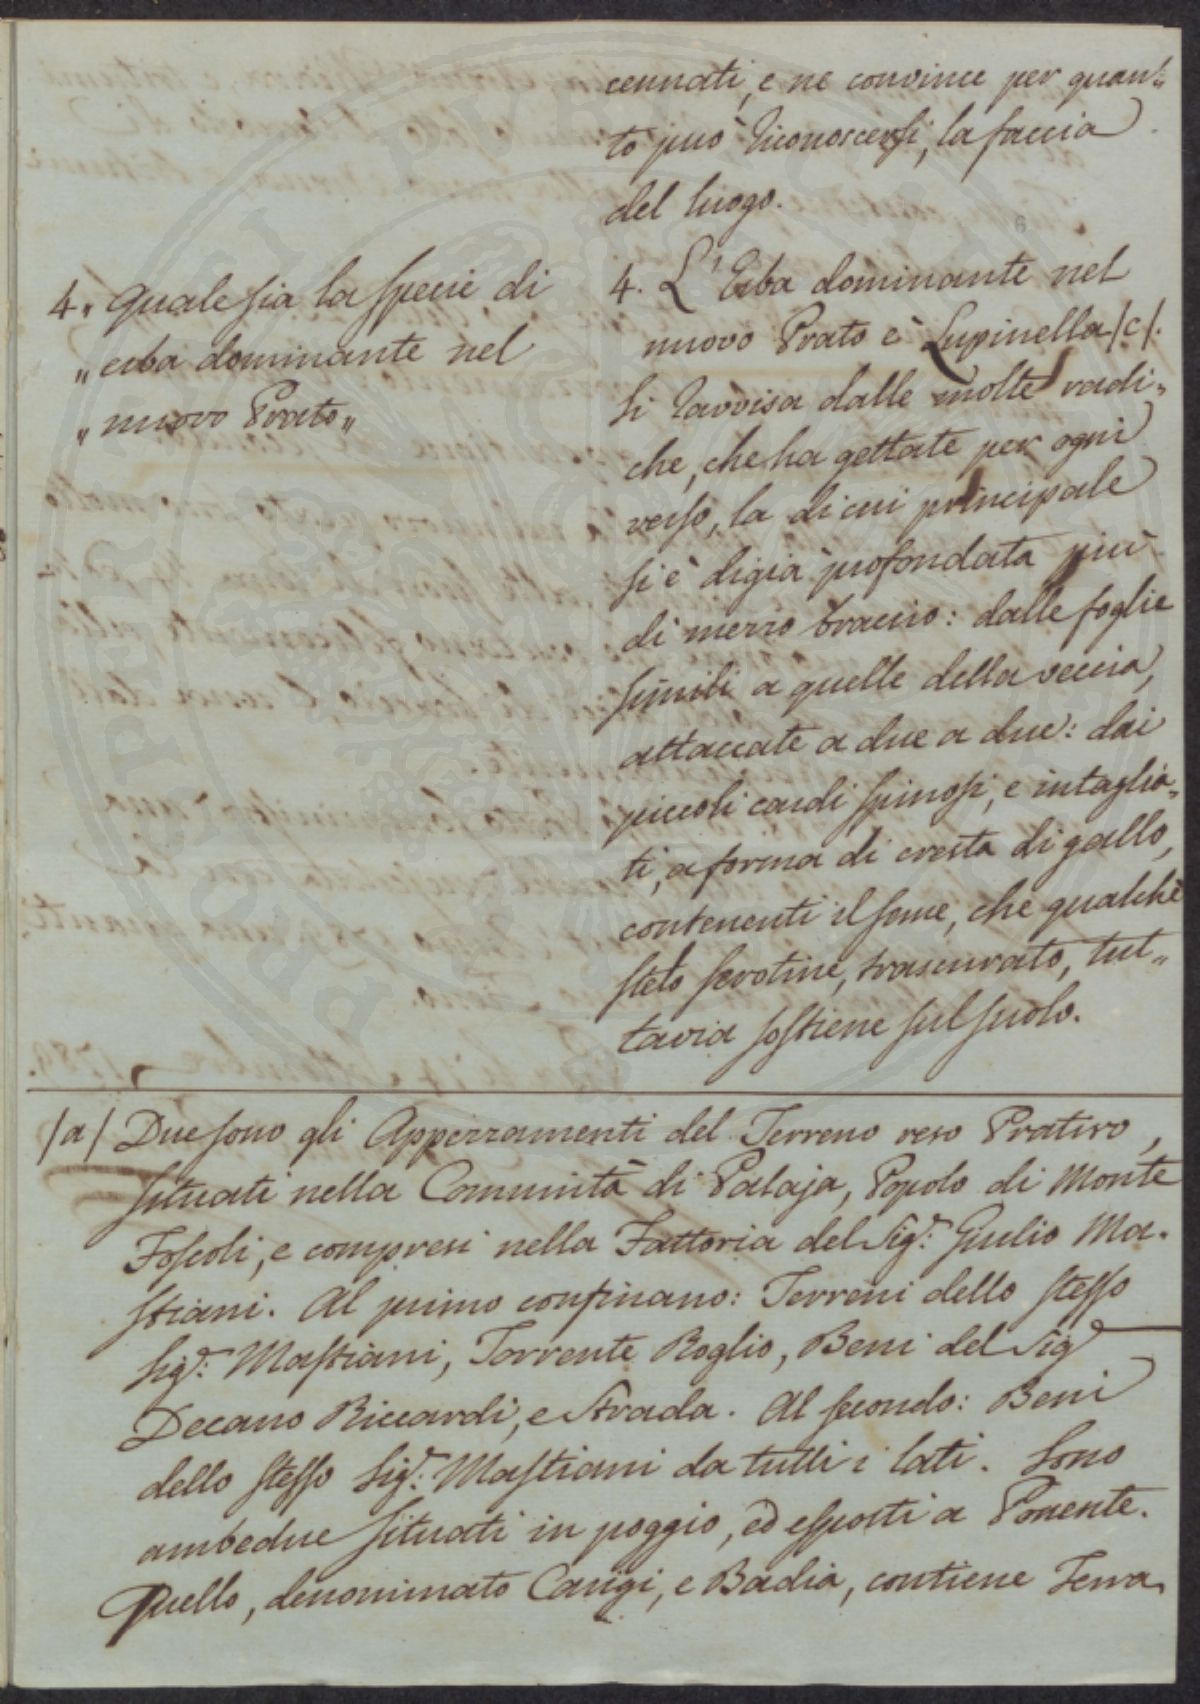 cennati, e ne convince per quan„
to può riconoscersi, la faccia
del luogo.
6
4„ Quale sia la specie di
„ erba dominante nel
„ nuovo Prato„
4. L'Erba dominante nel
nuovo Prato è Lupinella /c/.
Si ravvisa dalle molte radi„
che, che ha gettate per ogni
verso, la di cui principale
si è digià profondata più
di mezzo braccio: dalle foglie
simili a quelle della veccia,
attaccate a due a due: dai
piccoli cardi spinosi, e intaglia„
ti, a forma di cresta di gallo,
contenenti il seme, che qualche
stelo serotine, trascurato, tut„
tavia sostiene sul suolo.
/a/ Due sono gli Appezzamenti del Terreno reso Prativo,
situati nella Comunità di Palaja, Popolo di Monte
Foscoli, e compresi nella Fattoria del Sig.r Giulio Ma„
stiani. Al primo confinano: Terreni dello stesso
Sig.r Mastiani, Torrente Roglio, Beni del Sig.r
Decano Riccardi, e Strada. Al secondo: Beni
dello stesso Sig.r Mastiani da tutti i lati. Sono
ambedue situati in poggio, ed esposti a Ponente.
Quello, denominato Carigi, e Badia, contiene Terra